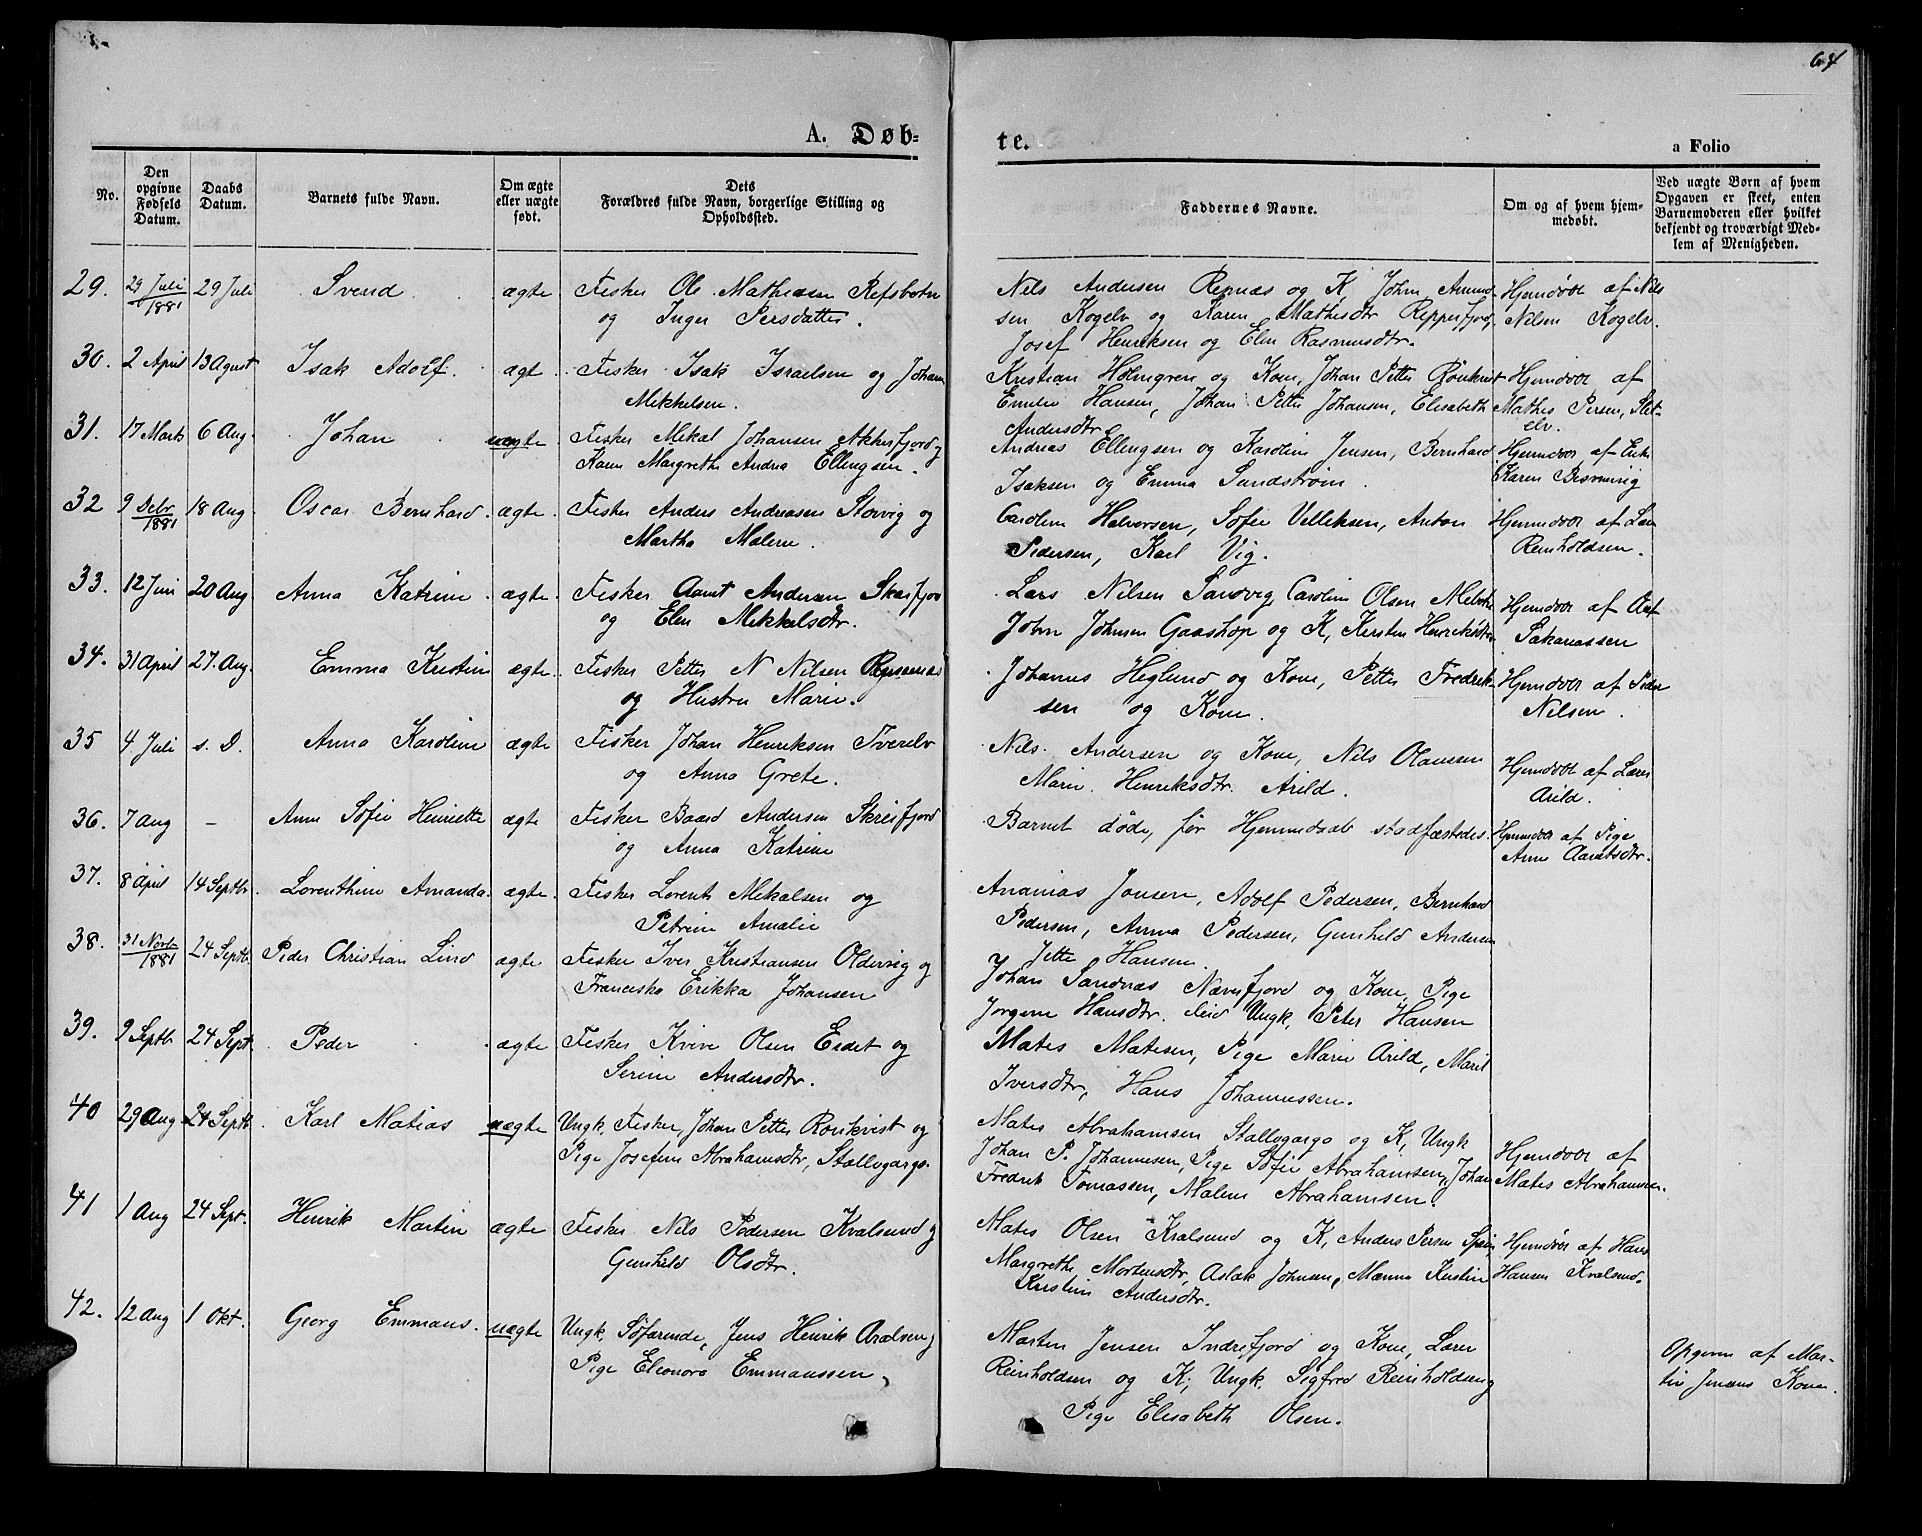 64
A. Døb-
te.
a Folio
No.
Den opgivne Fødsels Datum.
Daabs Datum.
Barnets fulde Navn.
Om ægte eller uægte født.
Dets Forældres fulde Navn, borgerlige Stilling og Opholdssted.
Faddernes Navne.
Om og af hvem hjem-
medøbt.
Ved uægte Børn af hvem
Opgaven er skeet, enten
Barnemoderen eller hvilket
bekjendt og troværdigt Med-
lem af Menigheden.
29. 29 Juli 1881 29 Juli Svend ægte Fisker Ole Mathisen Refsbotn
og Inger Persdatter.
Nils Andersen Repnæs og K, John Amund-
sen Kogelv og Karen Mathisdtr Repperfjord,
Josef Henriksen og Elen Rasmusdtr.
Hjemdøbt af Nils
Nilsen Kogelv.
30. 2 April 13 Agust Isak Adolf. ægt Fisker Isak Israelsen og Johan
Mikkelsen.
Kristian Holmgren og Kone, Johan Petter Rönkvist
Emilie Hansen, Johan Petter Johansen, Elisabeth
Andersdtr
Hjemdøbt af
Mathis Persen, Slet-
elv.
31. 17 Marts 6 Aug. Johan uægte Fisker Mikal Johansen Akkerfjord og
Karen Margrethe Andrea Ellingsen.
Andreas Ellingsen og Karoline Jensen, Bernhard
Isaksen og Emma Sandström.
Hjemdøbt af
Karen
32 9 Debr 1881 18 Aug. Oscar Bernhard. ægte. Fisker Anders Andreasen Storvig og
Martha Malene.
Caroline Halvorsen, Sofie Velleksen, Anton
Pedersen, Karl Vig.
Hjemdøbt af Lærer
Reinholdsen.
33. 12 Juni 20 Aug. Anna Katrine ægte. Fisker Aamt Andersen Skreifjor
og Elen Mikkelsdtr.
Lars Nilsen Sandvig, Caroline Olsen
John Johnsen Gaashop og K, Kirsten Henriksdtr,
Hjemdøbt af
Sakariassen
34. 31 April 27. Aug. Emma Kristine ægte. Fisker Petter N Nilsen
og Hustru Marie.
Johannes Heglund og Kone, Petter Fredrik-
sen og Kone.
Hjemdøbt af Peder
Nilsen.
35 4 Juli s. D. Anna Karoline ægte Fisker Johan Henriksen Tverelv
og Anna Grete.
Nils Andersen og Kone, Nils Olaussen
Marie Henriksdtr. Arild.
Hjemdøbt af Lærer
Arild.
36. 7 Aug - Anne Sofie Henriette ægte Fisker Baard Andersen Skreifjord
og Anna Katrine
Barnet døde, før Hjemmedaab stadfæstedes.
Hjemdøbt af Pige
Anne Aamtsdtr.
37. 8 April 14 Septbr. Lorenthine Amanda. ægte. Fisker Lorents Mikalsen og
Petrine Amalie
Ananias Jonsen, Adolf Pedersen, Bernhard
Pedersen, Anna Pedersen, Gunhild Andersen
Jette Hansen.
38. 31 Novbr 1881 24 Septb. Peder Christian Lind ægte Fisker Iver Kristiansen Oldervig og
Franciska Erikka Johansen
Johan Sandnæs Næverfjord og Kone, Pige
Jørgine Hansdtr. Ungk. Peter Hansen
39. 9 Septb 24 Sept. Peder ægte Fisker Kvive Olsen Eidet og
Serine Andersdtr.
Mates Matesen, Pige Marie Arild, Marit
Iversdtr, Hans Johannessen.
40 29 Aug 24 Septb. Karl Matias uægte Ungk. Fisker, Johan Petter Rönkvist og
Pige Josefine Abrahamsdtr, Stallogargo.
Mates Abrahamsen Stallogargo og K, Ungk
Johan P. Johannesen, Pige Sofie Abrahamsen, Johan
Fredrik Tomassen, Malene Abrahamsen.
Hjemdøbt af
Mates Abrahamsen.
41 1 Aug 24 Sept. Henrik Martin ægte Fisker Nils Pedersen Kvalsund og
Gunhild Olsdtr.
Mates Olsen Kvalsund og K, Anders Persen
Margrethe Mortensdtr, Aslak Johnsen, Manna Kirstine
Kristine Andersdtr.
Hjemdøbt af Hans
Hansen Kvalsund.
42. 12 Aug 1 Okt. Georg Emmaus. uægte Ungk. Söfarende, Jens Henrik og
Pige Eleonora Emmaussen,
Martin Jensen Indrefjord og Kone, Lærer
Reinholdsen og K; Ungk. Sigfred Reinholdsen og
Pige Elisabeth Olsen.
Opgiven af Mar-
tin Jensens Kone.